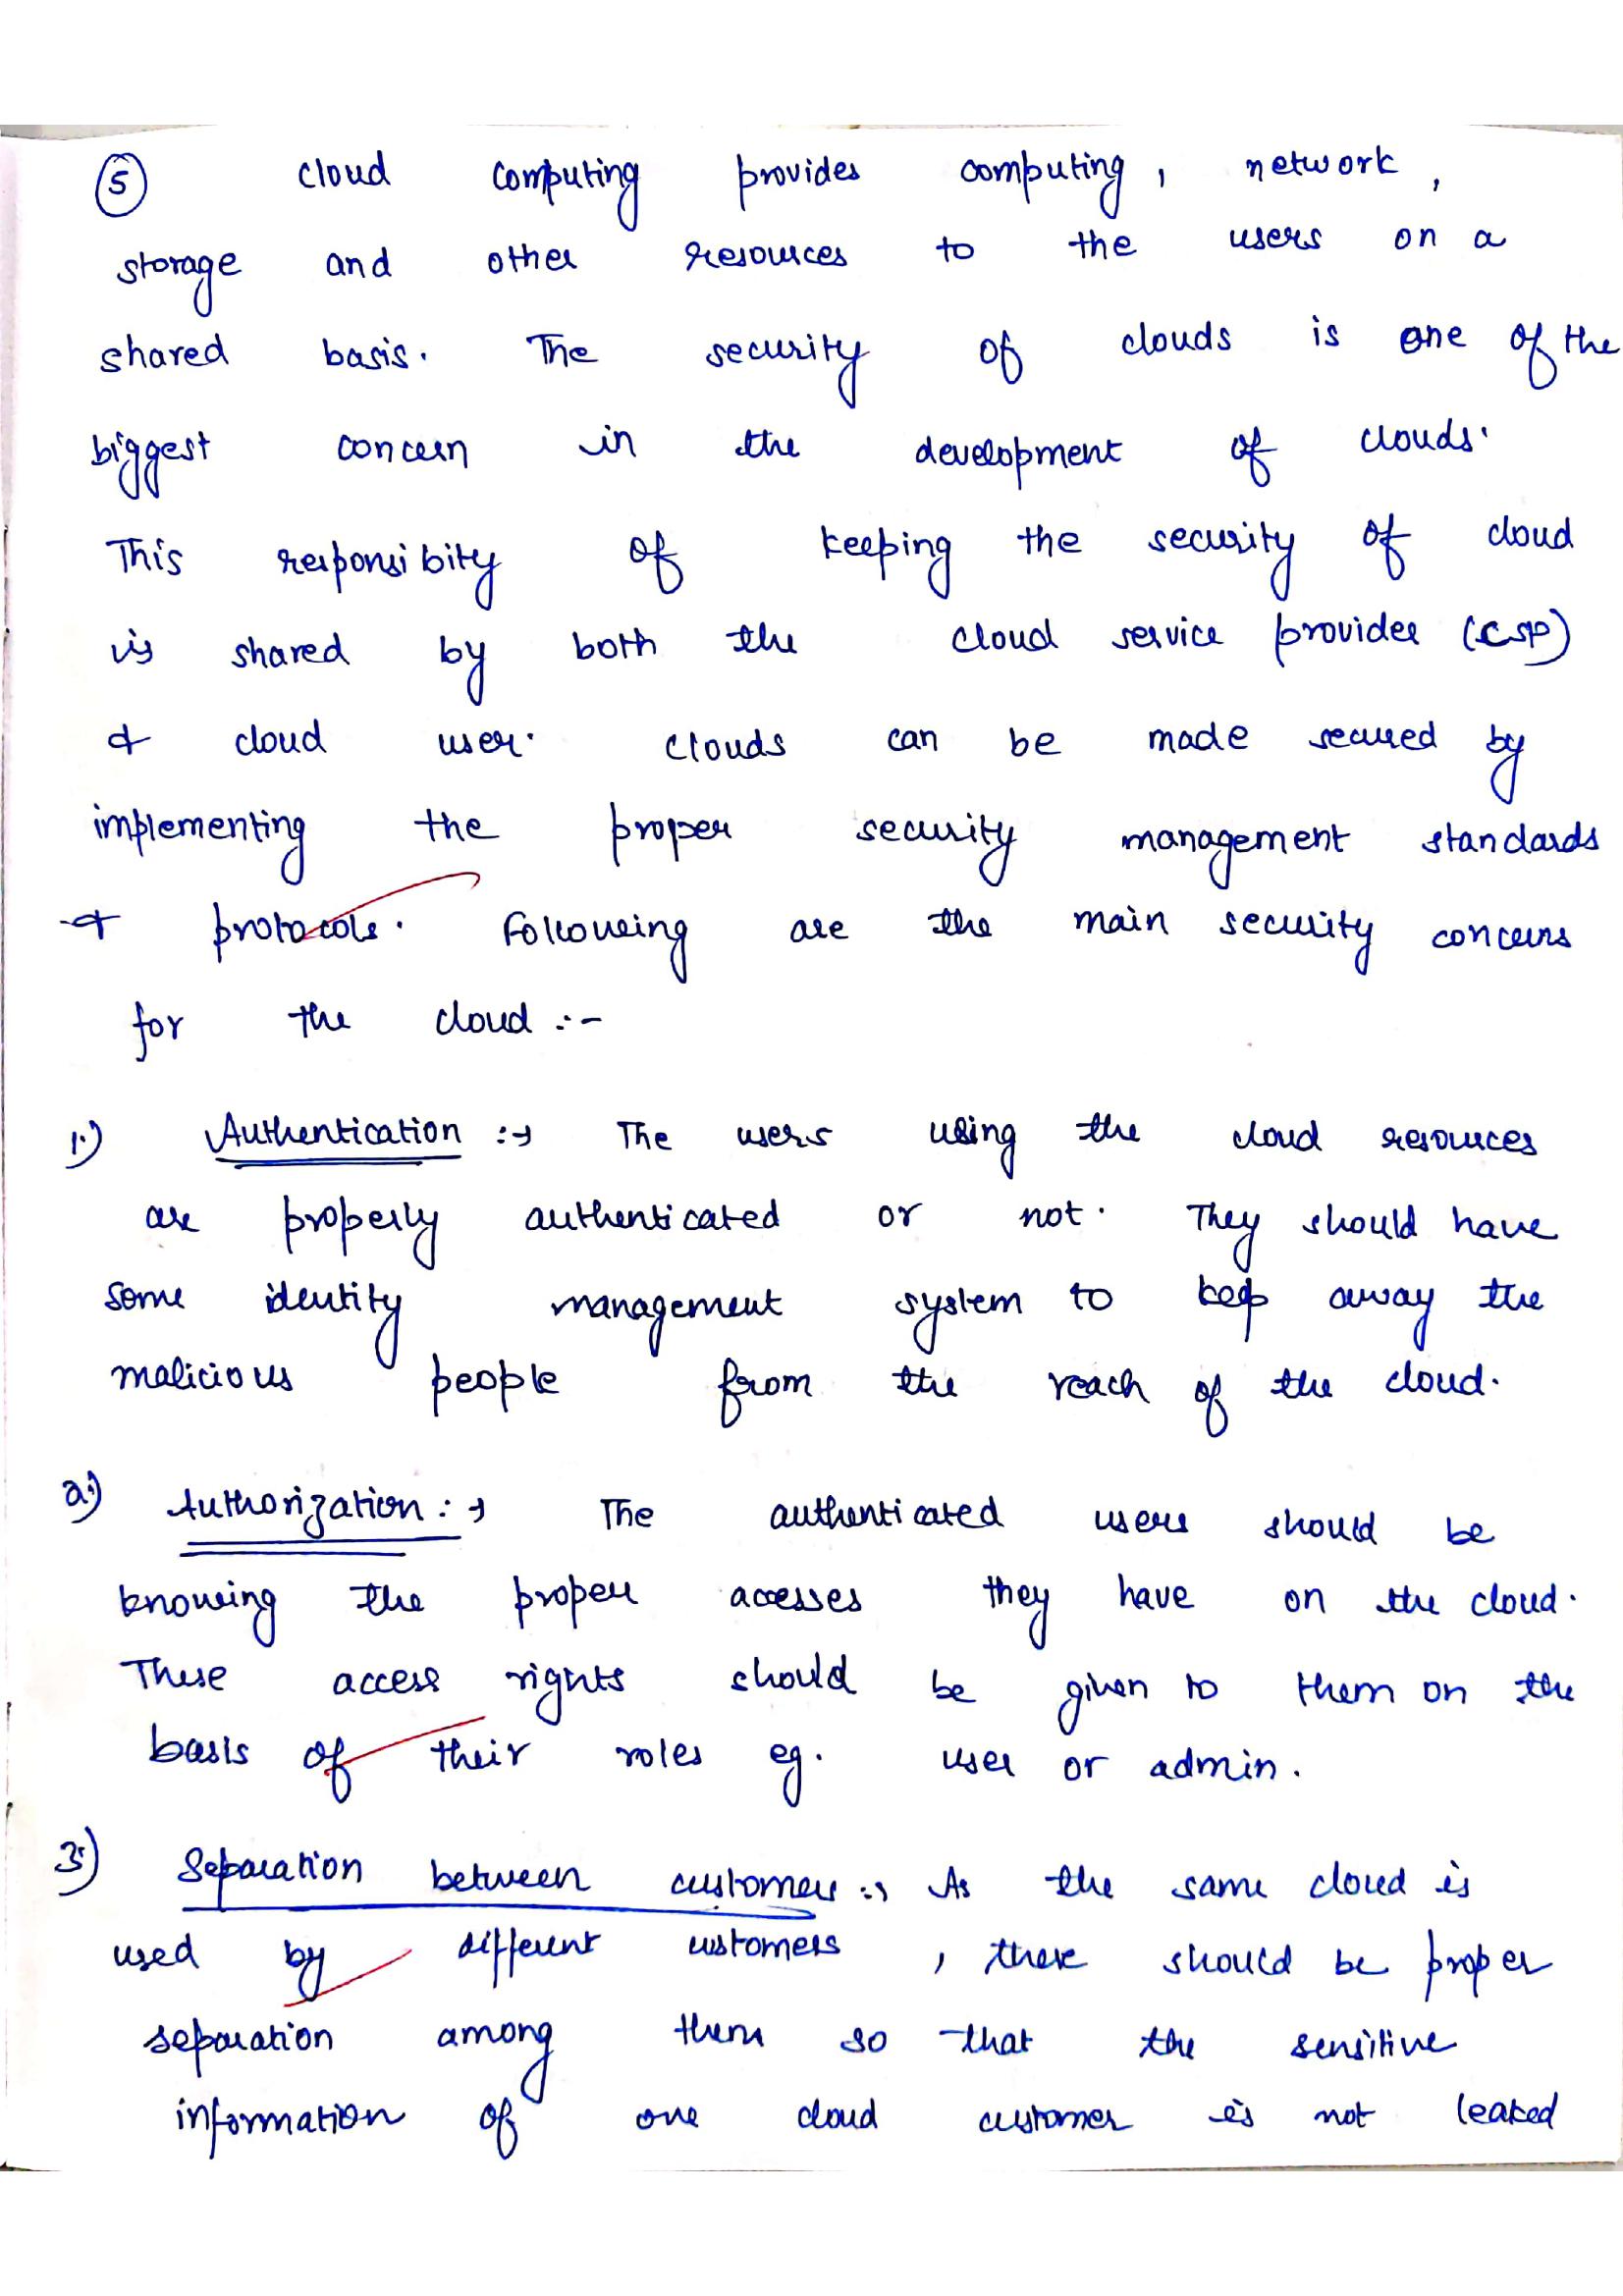 5 cloud computing provides computing, network,
storage and other resources to the users on a
shared basis. The security of clouds is one of the
biggest concern in the development of clouds.
This responsibity of keeping the security of cloud
is shared by both the cloud service provider (CSP)
& cloud user. clouds can be made secured by
implementing the proper security management standards
& protocols. Following are the main security concerns
for the cloud :-
1.) Authentication :→ The users using the cloud resources
are properly authenticated or not. They should have
some identity management system to keep away the
malicious people from the reach of the cloud.
2.) Authorization :→ The authenticated users should be
knowing the proper accesses they have on the cloud.
These access rights should be given to them on the
basis of their roles eg. user or admin.
3.) Separation between customers :→ As the same cloud is
used by different customers, there should be proper
separation among them so that the sensitive
information of one cloud customer is not leaked